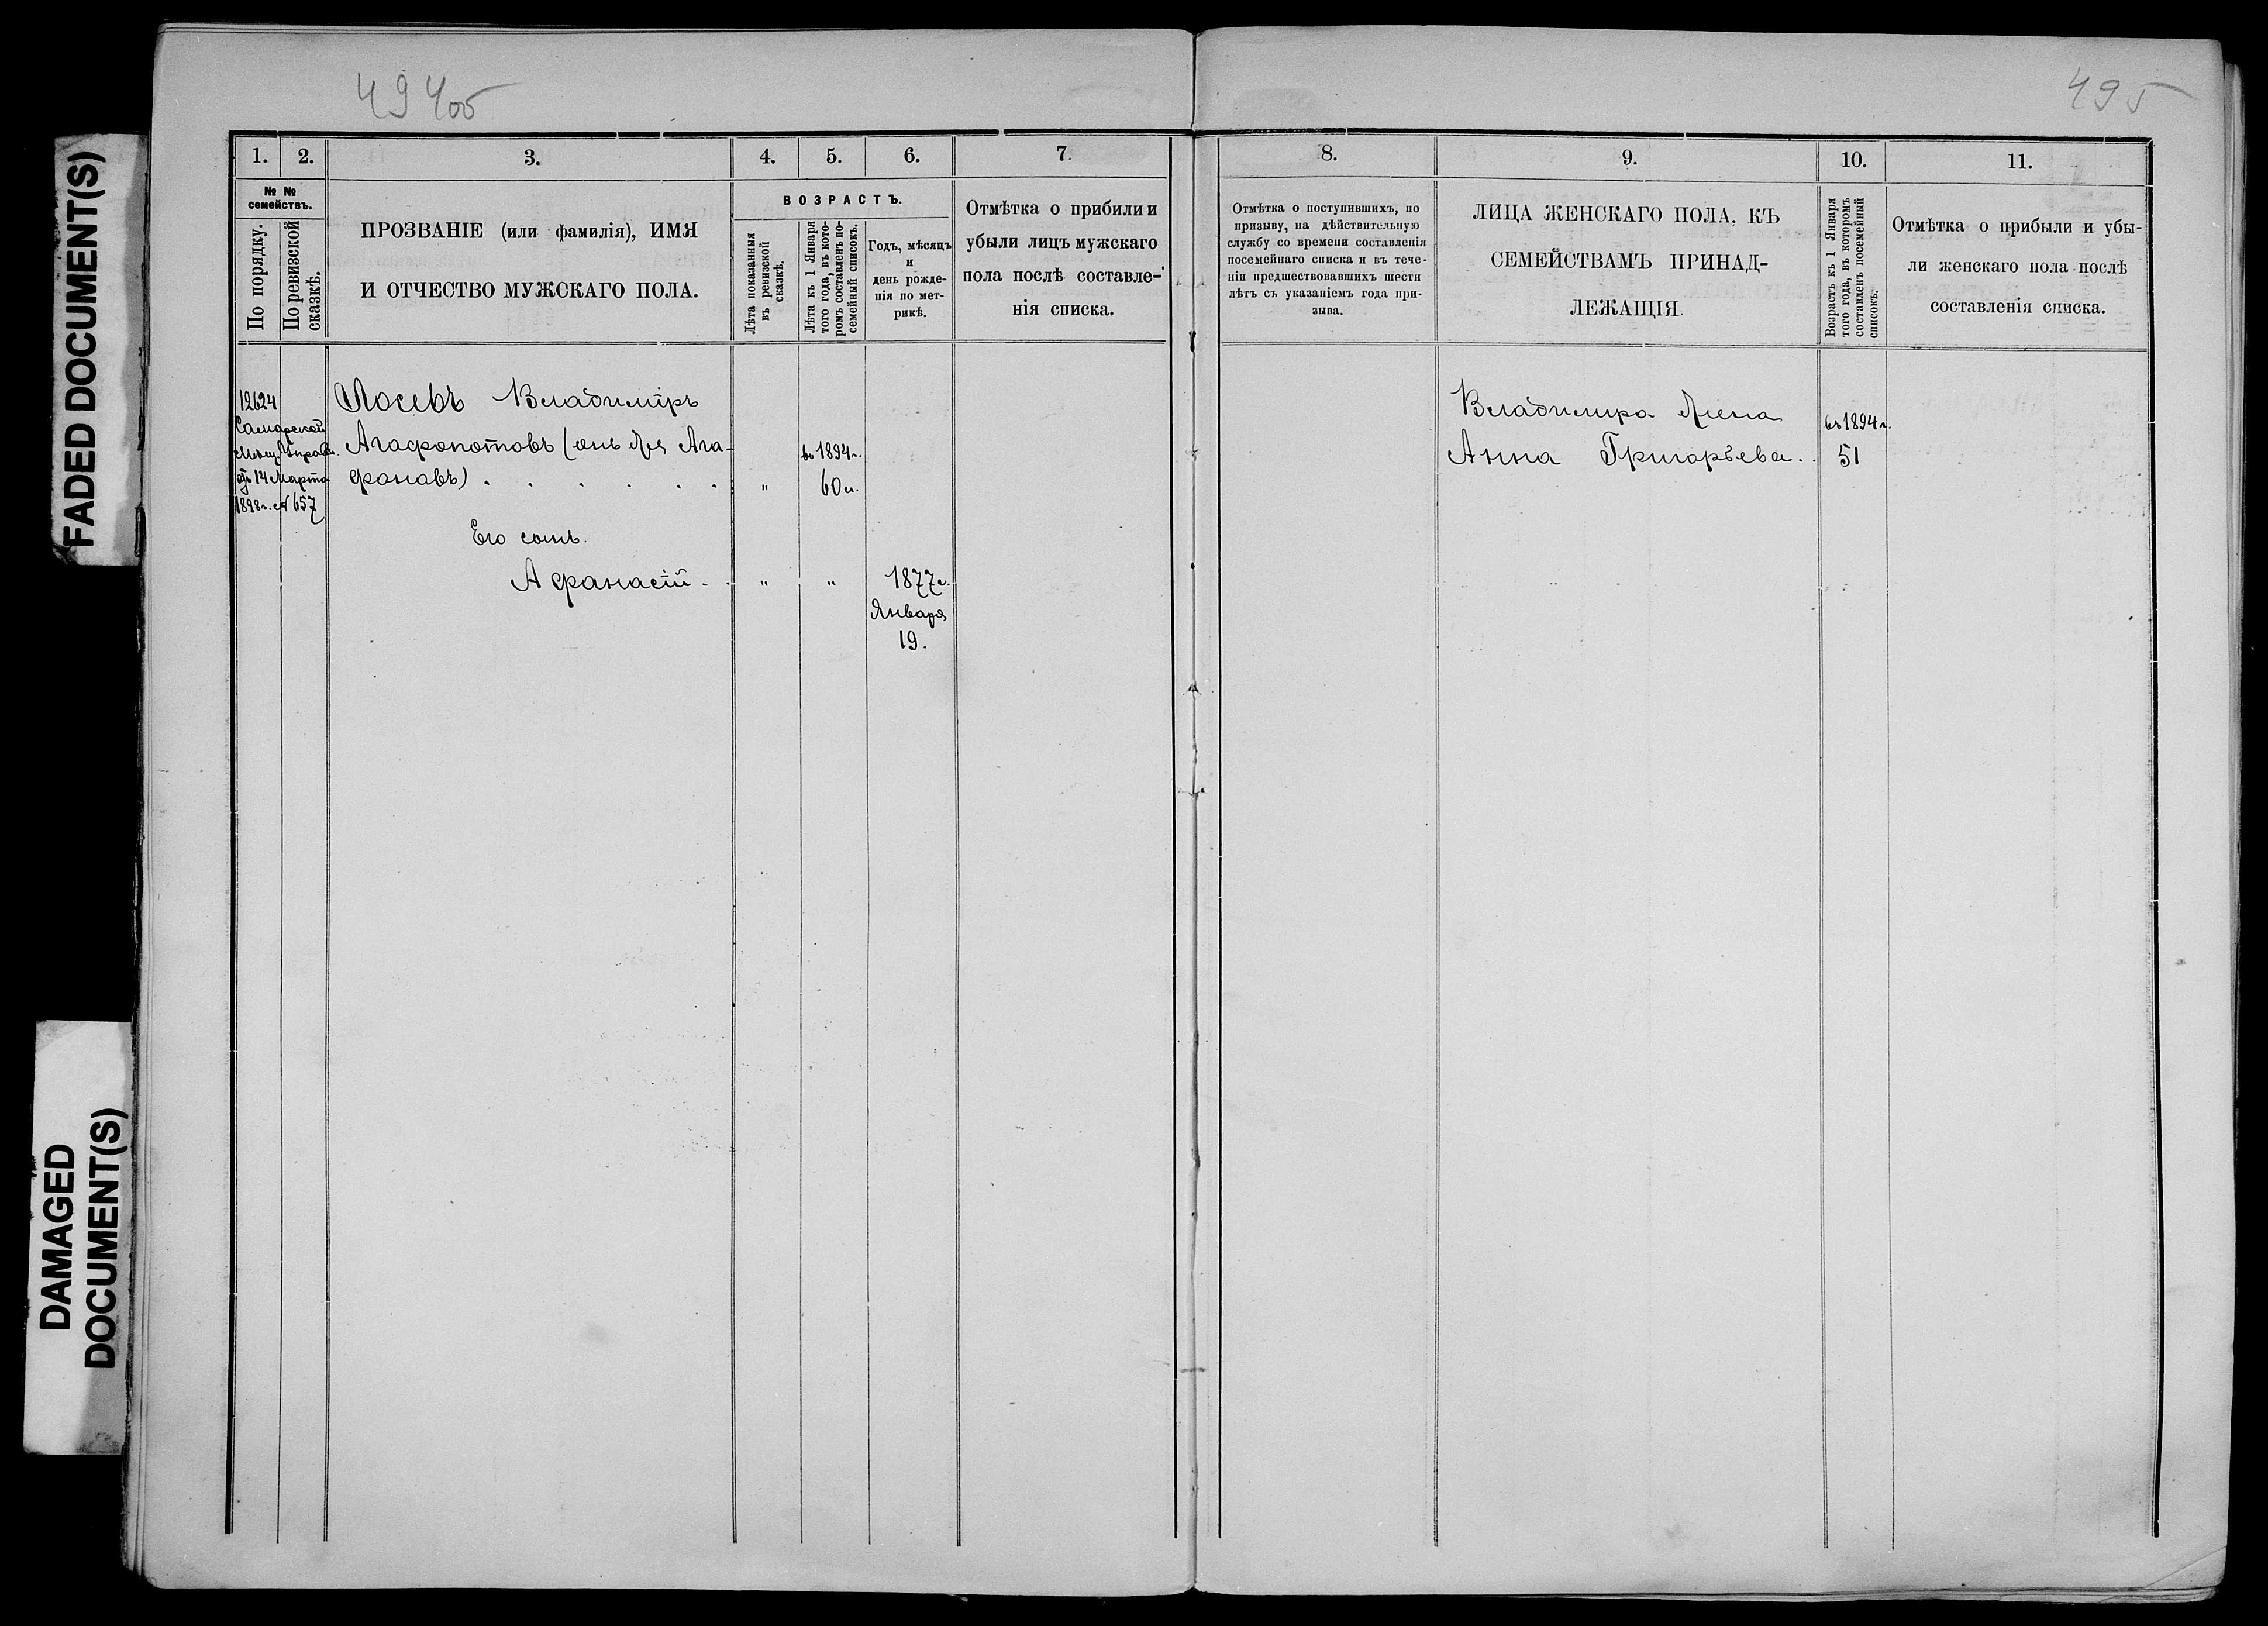 FADED DOCUMENT(S)
DAMAGED
DOCUMENT(S)
494об
495
1. 2. 3. 4. 5. 6. 7.
№ №
семействъ.
По порядку.
По ревизской
сказкѣ.
ПРОЗВАНІЕ (или фамилія), ИМЯ
И ОТЧЕСТВО МУЖСКАГО ПОЛА.
ВОЗРАСТЪ.
Лѣта показанныя
въ ревизской
сказкѣ.
Лѣта къ 1 Января
того года, въ кото-
ромъ составленъ по-
семейный списокъ.
Годъ, мѣсяцъ
и
день рожде-
нія по мет-
рикѣ.
Отмѣтка о прибыли и
убыли лицъ мужскаго
пола послѣ составле-
нія списка.
12624
Самарской
Мѣщ. Управ.
отъ 14 Марта
1898г. № 657
Лосевъ Владиміръ
Агафопотовъ (онъ же Ага-
фоновъ)
въ 1894г.
" 60л.
Его сынъ.
Афанасій
" " 1877г.
Января
19.
8. 9. 10. 11.
Отмѣтка о поступившихъ, по
призыву, на дѣйствительную
службу со времени составленія
посемейнаго списка и въ тече-
ніи предшествовавшихъ шести
лѣтъ съ указаніемъ года при-
зыва.
ЛИЦА ЖЕНСКАГО ПОЛА, КЪ
СЕМЕЙСТВАМЪ ПРИНАД-
ЛЕЖАЩІЯ.
Возрастъ къ 1 Января
того года, въ которомъ
составленъ посемейный
списокъ.
Отмѣтка о прибыли и убы-
ли женскаго пола послѣ
составленія списка.
Владимира жена
Анна Григорьева.
въ 1894г.
51